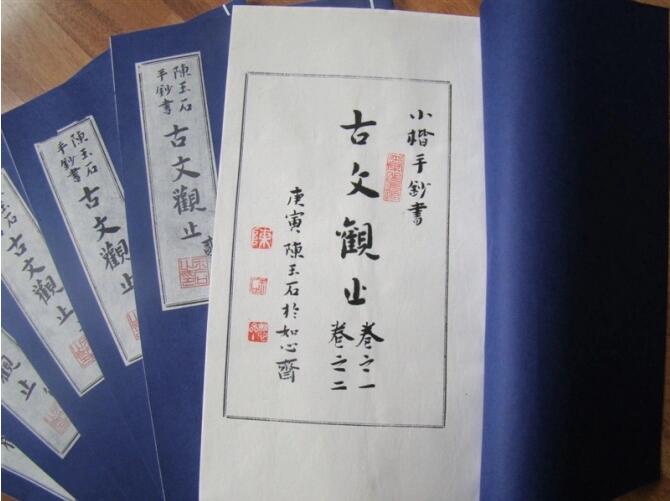 小楷手鈔書
古文觀止
卷之一
卷之二
庚寅陳玉石於如心齋
陳
陳玉石
手鈔書
古文觀止
陳玉石
手鈔書
古文觀止
古文觀止
觀止